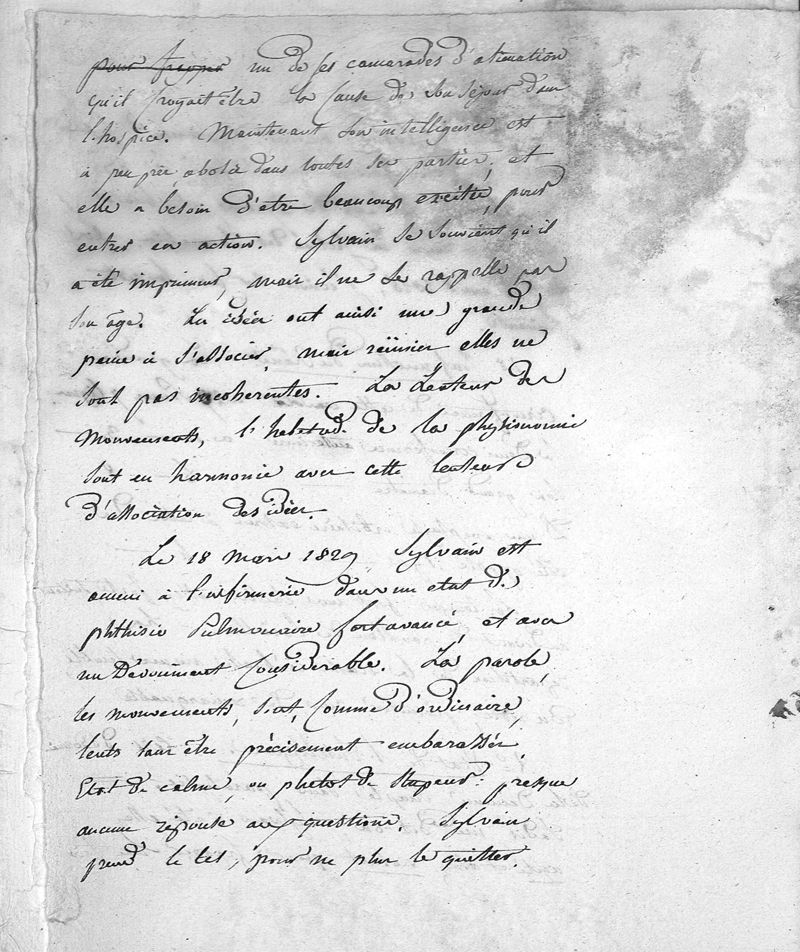 pour frapper un de ses camarades d'atination
qu'il croyait être la cause de son séjour dans
l'hospice. Maintenant son intelligence est
à peu près abolie dans toutes ses parties, et
elle a besoin d'etre beaucoup excitée, pour
entrer en action. Sylvain se souvient qu'il
a été imprimeur, mais il ne se rappelle pas
son âge. Les idées ont ainsi une grande
peine à s'associer, mais réunies elles ne
sont pas incoherentes. La Lenteur des
mouvements, l'hebetude de la physionomie
sont en harmonie avec cette lenteur
d'association des idées.
Le 18 mars 1829 Sylvain est
amené à l'infirmerie dans un etat de
phthisie Pulmonaire fort avancé, et avec
un Devoiment Considerable. La parole,
les mouvements, sont, comme d'ordinaire,
lents sans être précisement embarassés
Etat de calme, ou plutot de stupeur: presque
aucune réponse aux questions. Sylvain
prend le lit, pour ne plus le quitter.